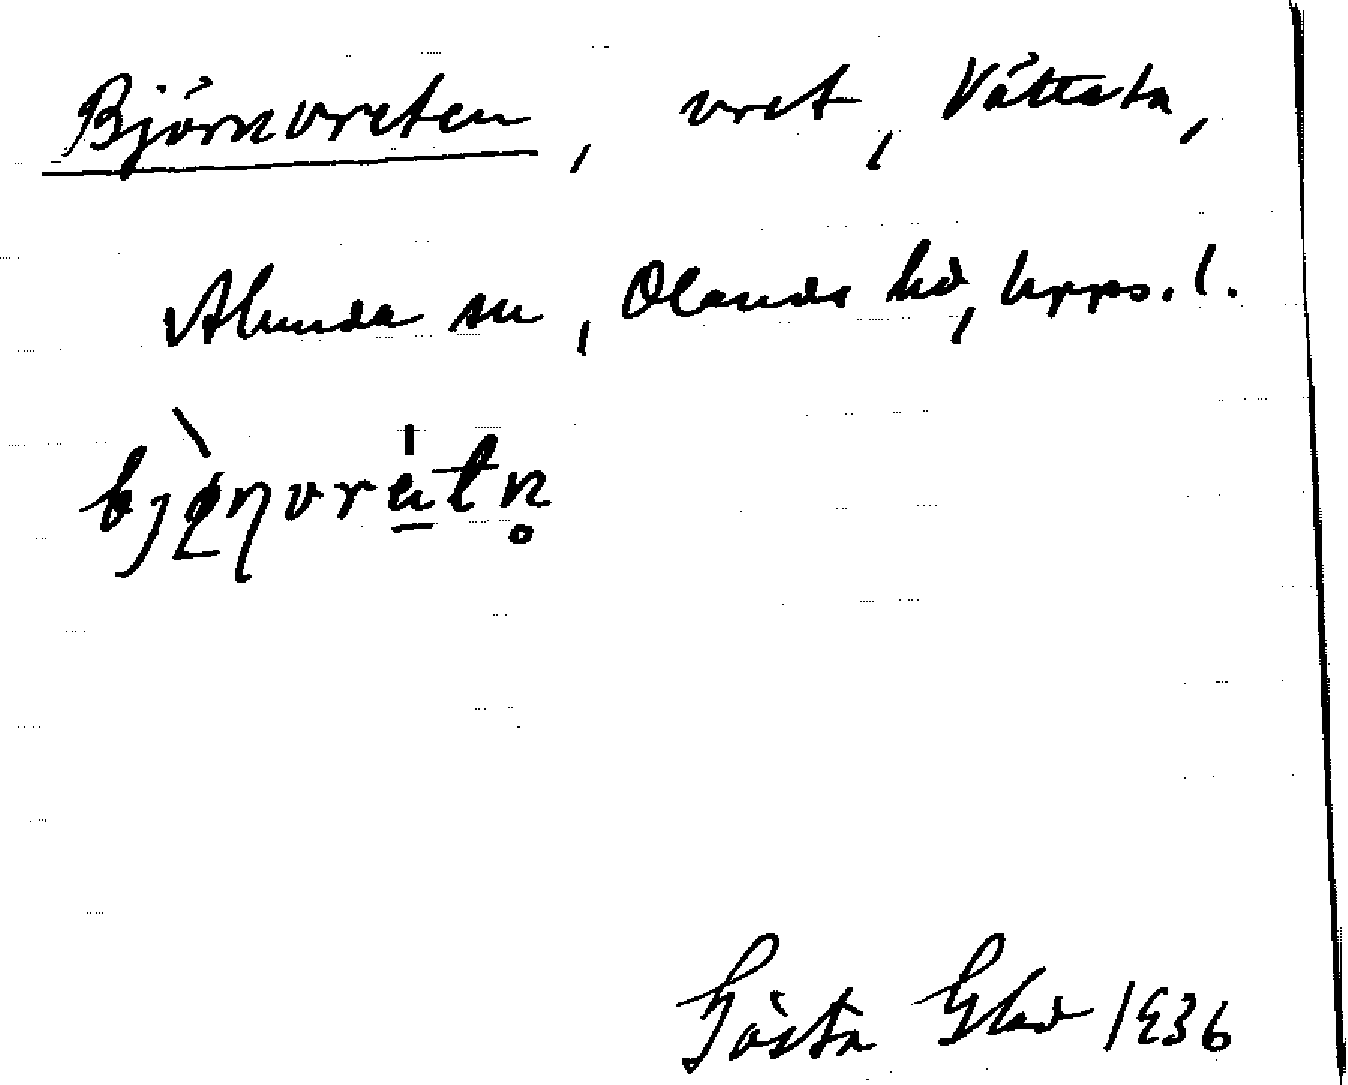 Björnvreten, vret, Våttsta,
Alunda sn, Olands hd, Upps. l.
Gösta Glad 1936